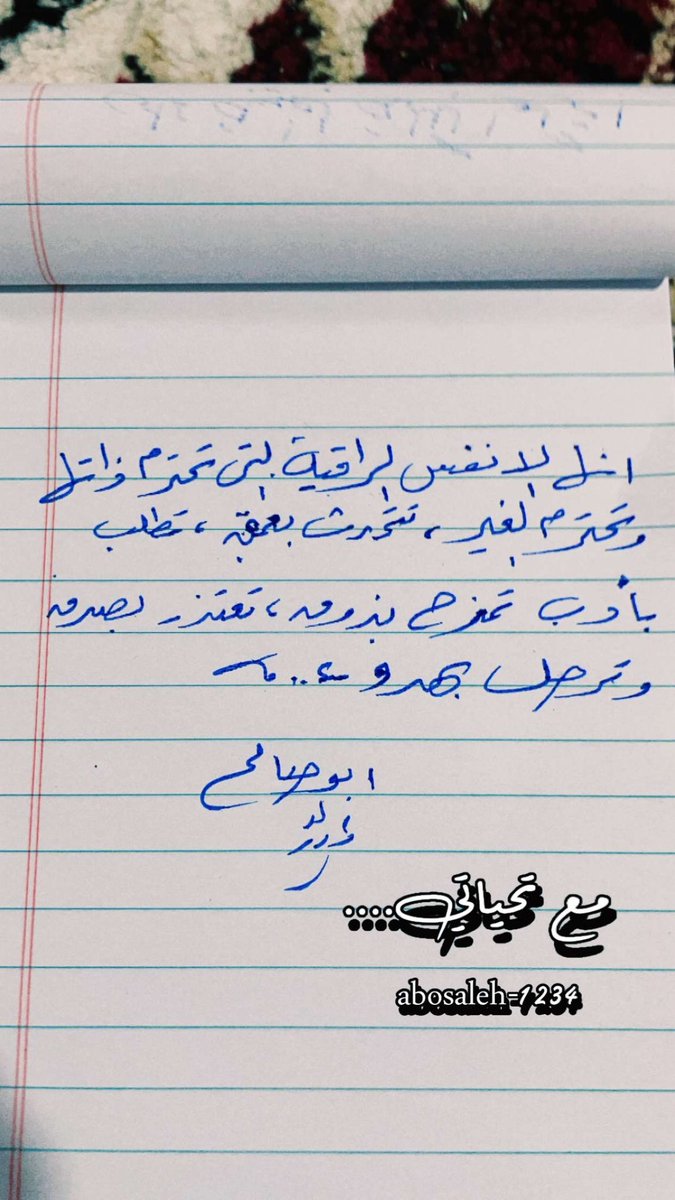 انها الانفس الراقية التي تحترم ذاتها
وتحترم الغير ، تتحدث بعمق ، تطلب
بأدب تمزح بذوق ، تعتذر بصدق
وترحل بهدوء ..
ابو صالح
مع تحياتي....
abosaleh-1234